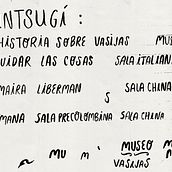 INTSUGÍ :
HISTORIA SOBRE VASIJAS MUS
UIDAR LAS COSAS SALA ITALIAN
MAIRA LIBERMAN S SALA CHINA
MANA SALA PRECOLOMBINA SALA CHINA
~ MU M MUSEO M
VASIJAS